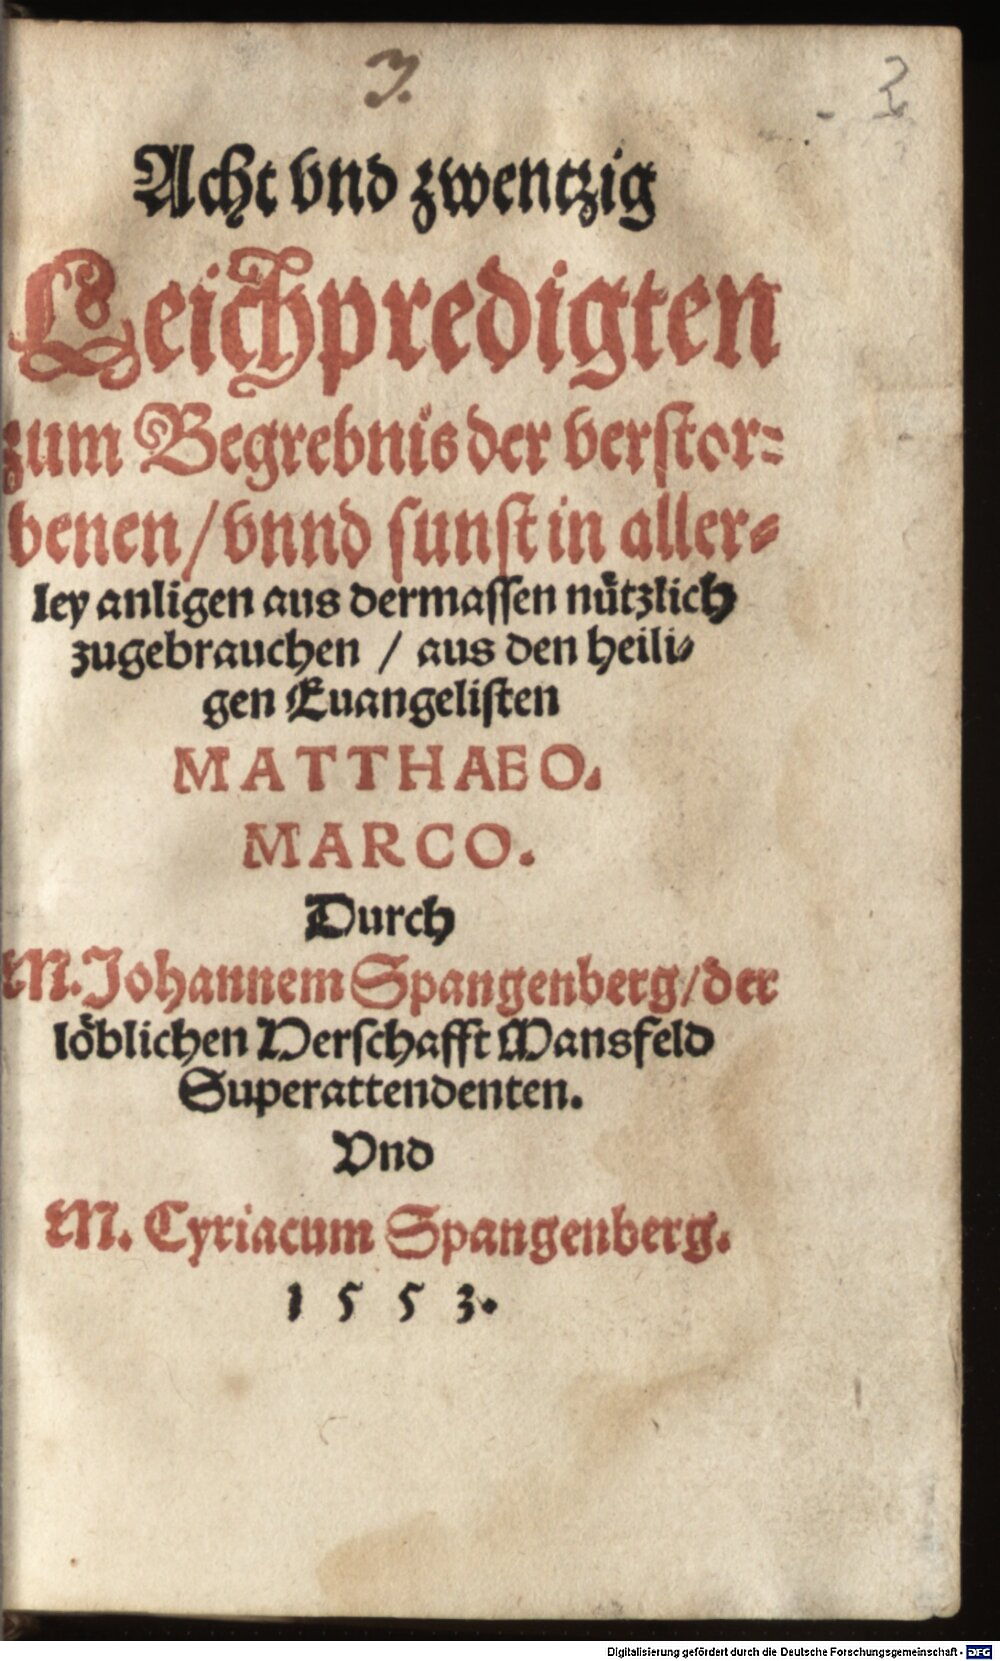 3.
3
Acht vnd zwentzig
Leichpredigten
zum Begrebnis der verstor⸗
benen / vnnd sunst in aller⸗
ley anligen aus dermassen nuͤtzlich
zugebrauchen / aus den heili⸗
gen Euangelisten
MATTHAEO.
MARCO.
Durch
M. Johannem Spangenberg / der
loͤblichen Herschafft Mansfeld
Superattendenten.
Vnd
M. Cyriacum Spangenberg.
1553.
Digitalisierung gefördert durch die Deutsche Forschungsgemeinschaft - DFG